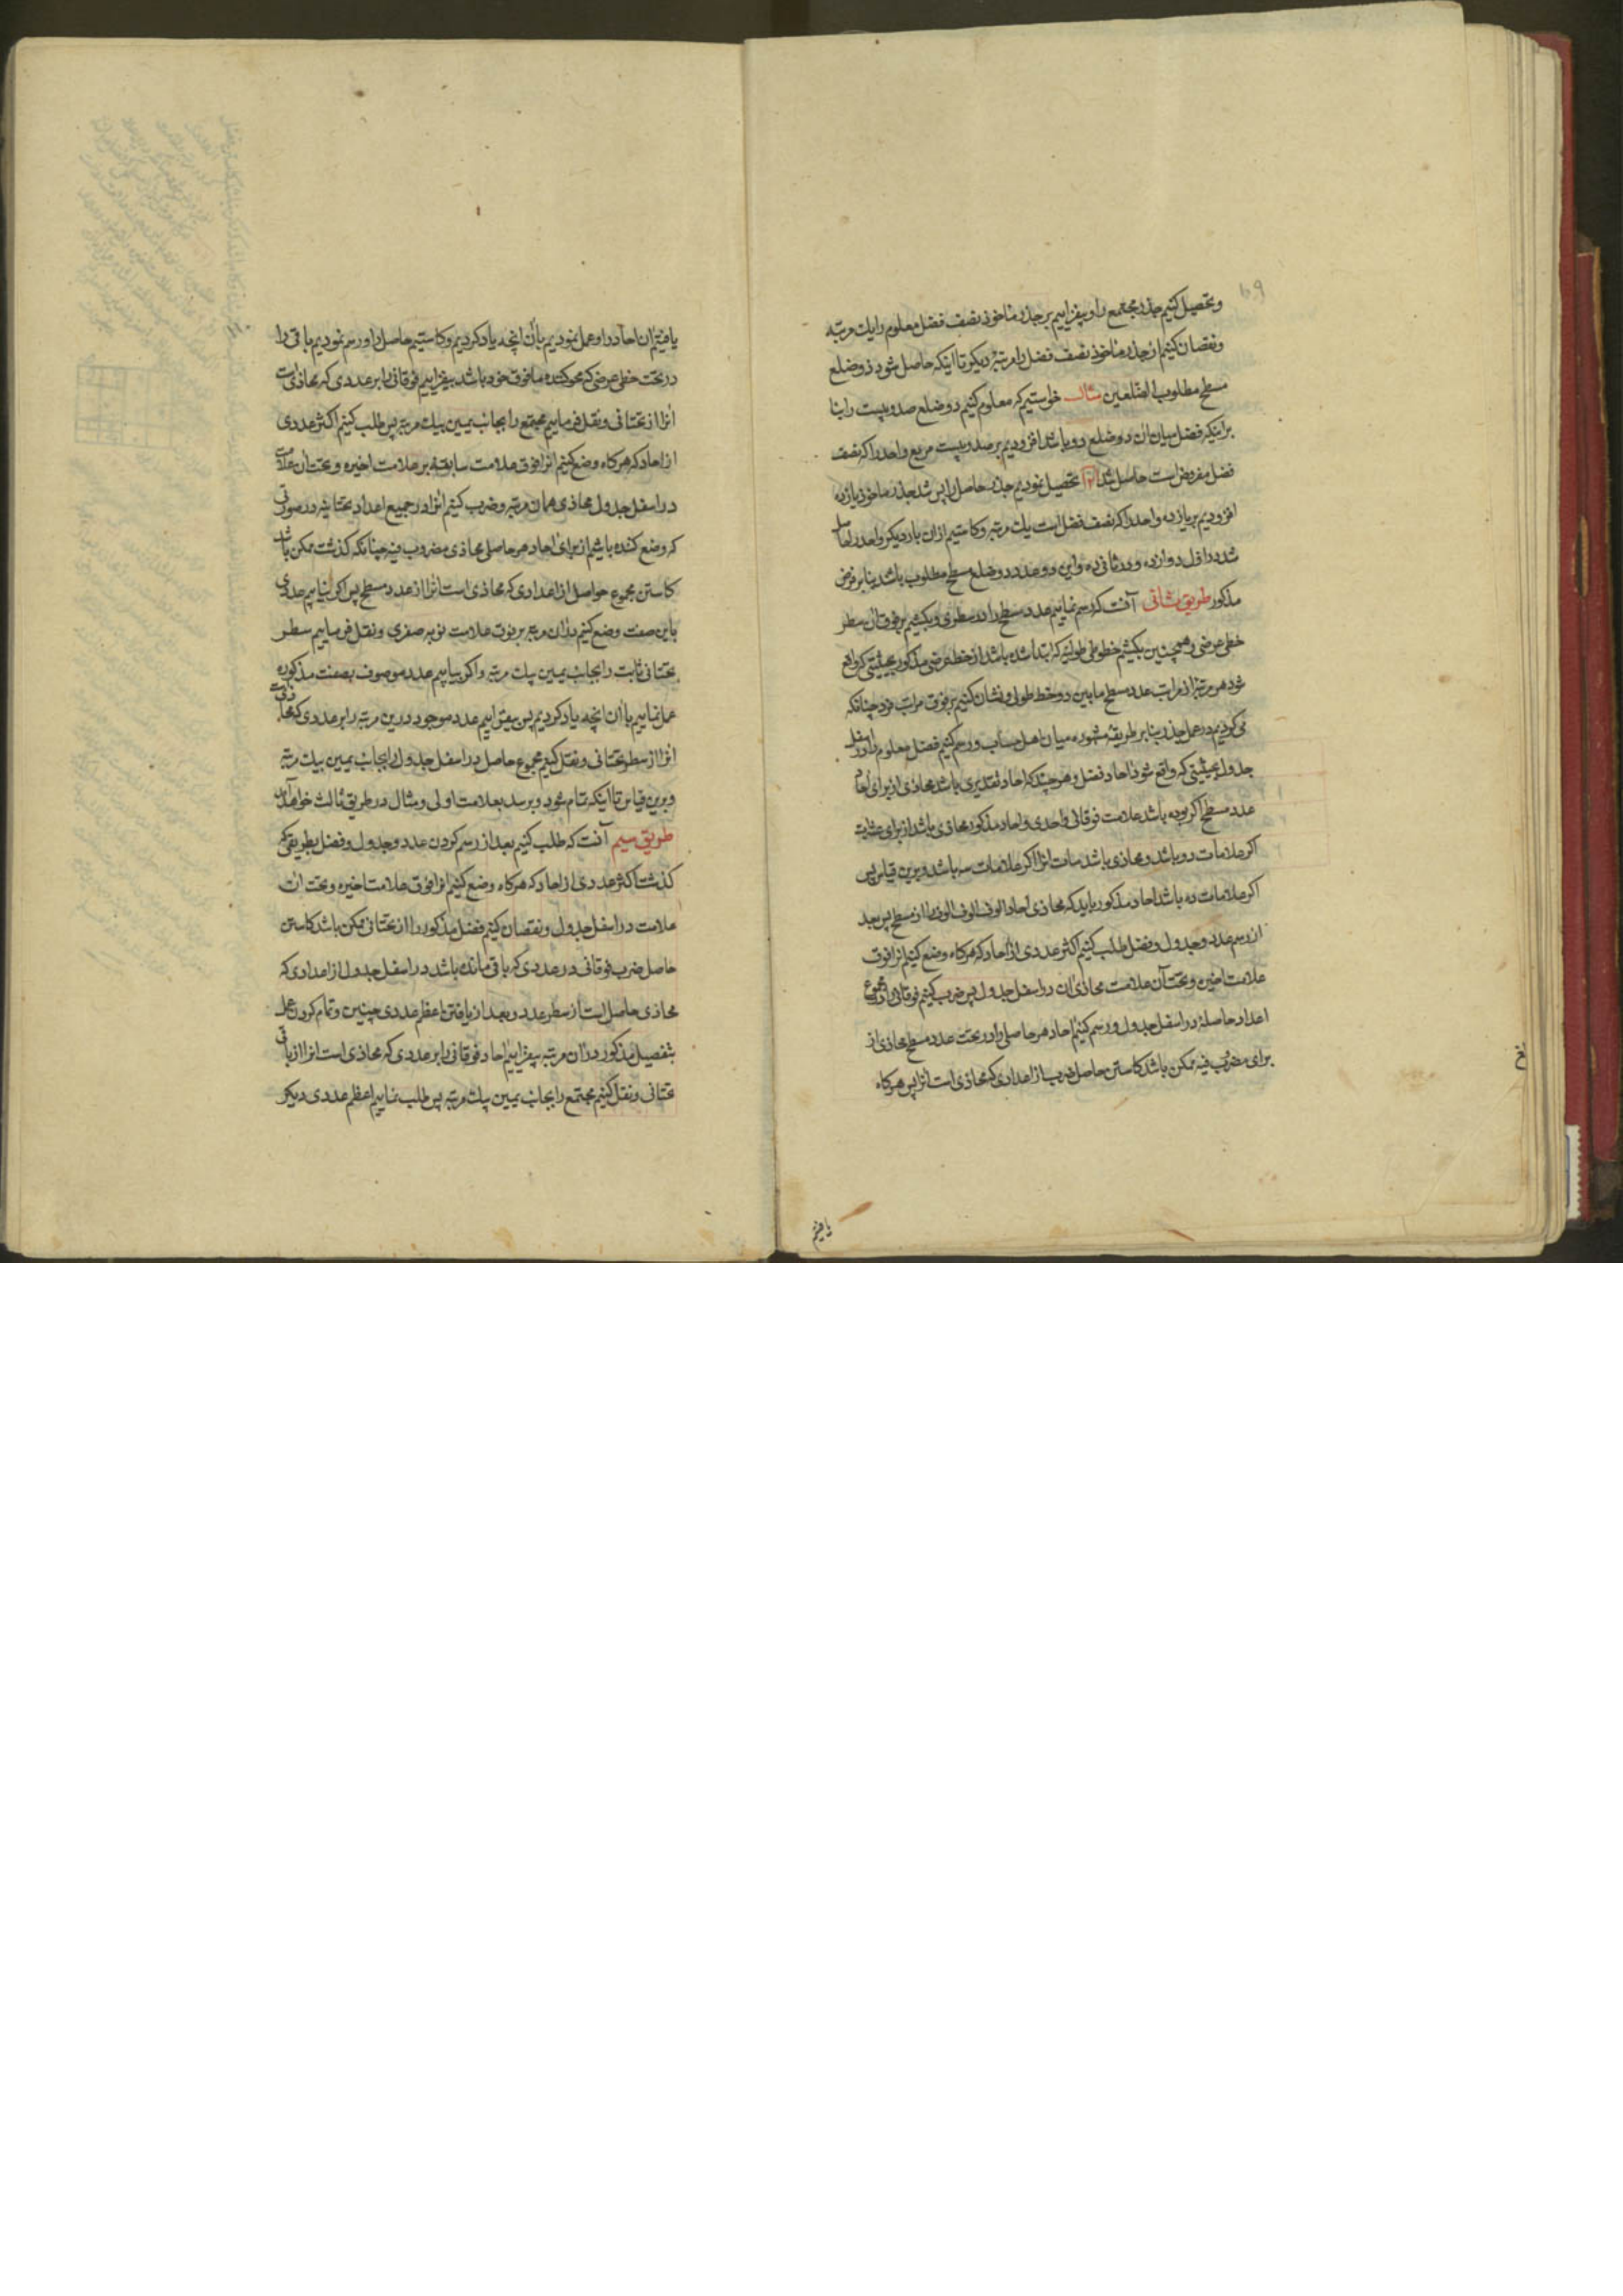 وتحصیل کنیم جذر مجتمع را وبیفزاییم بر جذر ماخوذ نصف فضل معلوم را یك مرتبه
ونقصان کنیم از جذر ماخوذ نصف فضل را مرتبهٔ دیکر تا اینکه حاصل شود دو ضلع
مسطح مطلوب الضلعین مثال خواستیم که معلوم کنیم دو ضلع صد وبیست را بنا
براینکه فضل میان ان دو ضلع دو باشد افزودیم بر صد وبیست مربع واحد را که نصف
فضل مفروض است حاصل شد تحصیل نمودیم جذر حاصل را پس شد جذر ماخوذ یازده
افزودیم بر یازده واحد را که نصف فضل است یك مرتبه وکاستیم ازان بار دیکر واحد را حاصل
شد در اول دوازده ودر ثانی ده واین دو عدد دو ضلع مسطح مطلوب باشد بنا بر فرض
مذکور طریق ثانی آنست که رسم نماییم عدد مسطح را در سطری وبکشیم بر فوق ان سطر
خطی عرضی وهمچنین بکشیم خطوطی طولیه که ابتدا شده باشد از خط عرضی مذکور بحیثیتی که واقع
شود هر مرتبهٔ از مراتب عدد مسطح مابین دو خط طولی ونشان کنیم بر فوق مراتب فرد چنانکه
می کردیم در عمل جذر بنا بر طریقهٔ مشهوره میان اهل حساب ورسم کنیم فضل معلوم را در اسفل
جدول بحیثیتی که واقع شود احاد فضل وهر چند که احاد تقدیری باشد محاذی از برای احاد
عدد مسطح اکر بوده باشد علامت فوقانی واحدی واحاد مذکور محاذی باشد از برای عشرات
اکر علامات دو باشد ومحاذی باشد مات انرا اکر علامات سه باشد وبرین قیاس پس
اکر علامات ده باشد احاد مذکور باید که محاذی احاد الوف الوف الوف را از مسطح پس بعد
از رسم عدد وجدول وفضل طلب کنیم اکثر عددی از احاد که هرکاه وضع کنیم انرا فوق
علامت اخیر وتحت آن علامت محاذی ان در اسفل جدول پس ضرب کنیم فوقانی را در مجموع
اعداد حاصلهٔ در اسفل جدول ورسم کنیم احاد هر حاصلی را در تحت عدد مسطح محاذی از
برای مضروب فیه ممکن باشد کاستن حاصل ضرب از اعدادی که محاذی است انرا پس هرکاه
یافتیم
یافتیم ان احاد را وعمل نمودیم باآن انچه یاد کردیم وکاستیم حاصل را ورسم نمودیم باقی را
در تحت خطی عرضی که محوکننده مافوق خود باشد بیفزاییم فوقانی را بر عددی که محاذی است
انرا از تحتانی ونقل فرماییم مجتمع را بجانب یمین بیك مرتبه پس طلب کنیم اکثر عددی
از احاد که هرکاه وضع کنیم انرا فوق علامت سابقه بر علامت اخیره وتحت ان علامت
در اسفل جدول محاذی همان مرتبه وضرب کنیم انرا در جمیع اعداد تحتانیه در صورتی
که وضع کننده باشیم از برای احاد هر حاصلی محاذی مضروب فیه چنانکه کذشت ممکن باشد
کاستن مجموع حواصل از اعدادی که محاذی است انرا از عدد مسطح پس اکر نیابیم عددی
باین صفت وضع کنیم دران مرتبه بر فوق علامت نوبه صفری ونقل فرماییم سطر
تحتانی ثابت را بجانب یمین یك مرتبه واکر بیابیم عدد موصوف بصفت مذکوره
عمل نماییم باآن انچه یاد کردیم پس بیفزاییم عدد موجود درین مرتبه را بر عددی که محاذی است
انرا از سطر تحتانی ونقل کنیم مجموع حاصل در اسفل جدول را بجانب یمین بیك مرتبه
وبرین قیاس تا اینکه تمام شود وبرسد بعلامت اولی ومثال در طریق ثالث خواهد آمد
طریق سیم آنست که طلب کنیم بعد از رسم کردن عدد وجدول وفضل بطریقی که
کذشت اکثر عددی از احاد که هرکاه وضع کنیم انرا فوق علامت اخیره وتحت ان
علامت در اسفل جدول ونقصان کنیم فضل مذکور را از تحتانی ممکن باشد کاستن
حاصل ضرب فوقانی در عددی که باقی مانده باشد در اسفل جدول از اعدادی که
محاذی حاصل است از سطر عدد وبعد از یافتن اعظم عددی چنین وتمام کردن عمل
بتفصیل مذکور دران مرتبه بیفزاییم احاد فوقانی را بر عددی که محاذی است انرا از باقی
تحتانی ونقل کنیم مجتمع را بجانب یمین یك مرتبه پس طلب نماییم اعظم عددی دیکر